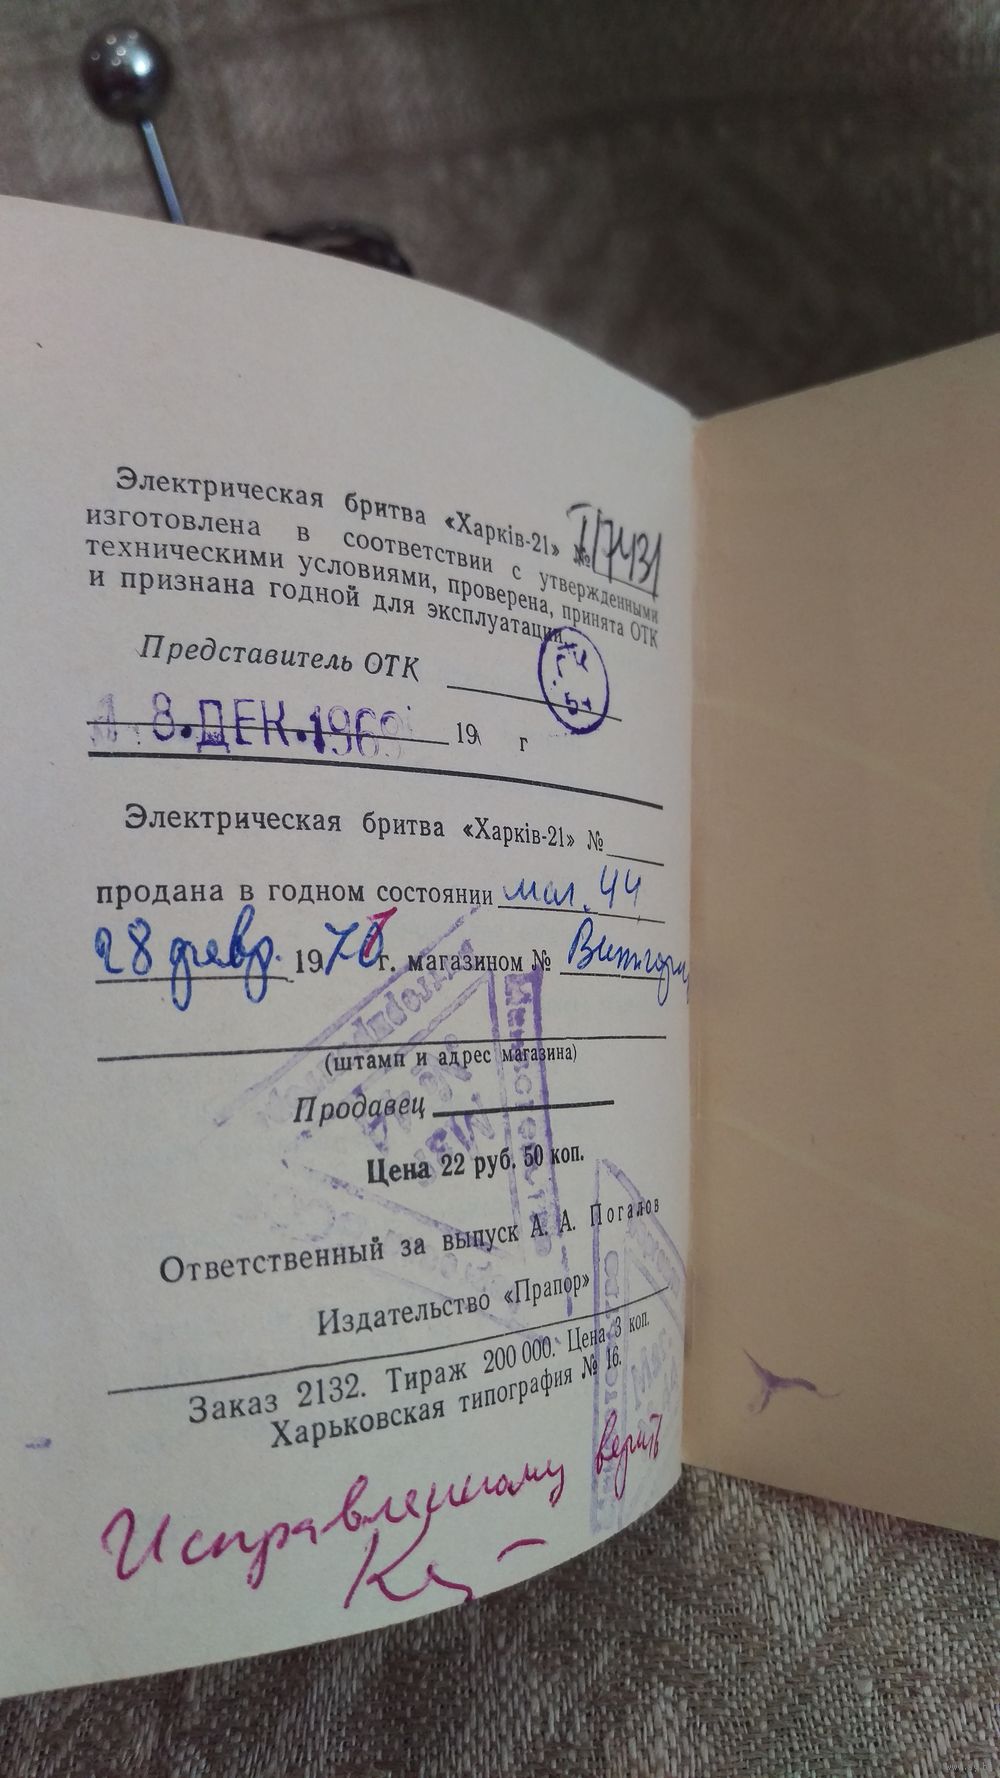 Электрическая бритва «Харків-21» № I/7431
изготовлена в соответствии с утвержденными
техническими условиями, проверена, принята ОТК
и признана годной для эксплуатации.
Представитель ОТК
18.ДЕК.1969 19 г
Электрическая бритва «Харків-21» №
продана в годном состоянии маг. 44
28 февр. 1970 г. магазином №
(штамп и адрес магазина)
Продавец
Цена 22 руб. 50 коп.
Ответственный за выпуск А. А. Погалов
Издательство «Прапор»
Заказ 2132. Тираж 200 000. Цена 3 коп.
Харьковская типография № 16.
Исправленному верить